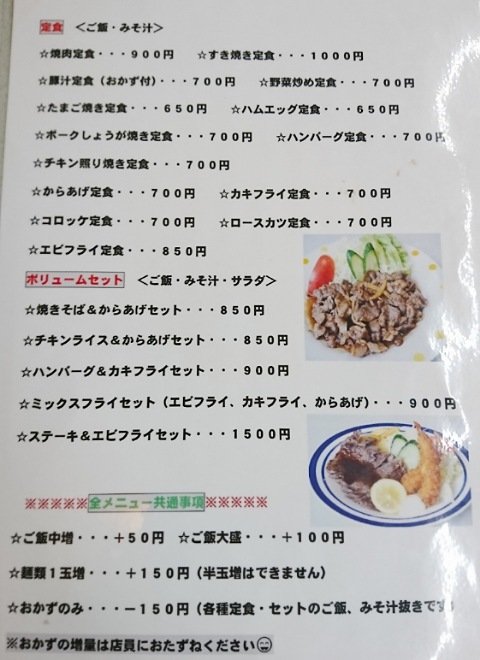 定食 <ご飯・みそ汁>
☆焼肉定食・・・９００円 ☆すき焼き定食・・・１０００円
☆豚汁定食（おかず付）・・・７００円 ☆野菜炒め定食・・・７００円
☆たまご焼き定食・・・６５０円 ☆ハムエッグ定食・・・６５０円
☆ポークしょうが焼き定食・・・７００円 ☆ハンバーグ定食・・・７００円
☆チキン照り焼き定食・・・７００円
☆からあげ定食・・・７００円 ☆カキフライ定食・・・７００円
☆コロッケ定食・・・７００円 ☆ロースカツ定食・・・７００円
☆エビフライ定食・・・８５０円
ボリュームセット <ご飯・みそ汁・サラダ>
☆焼きそば＆からあげセット・・・８５０円
☆チキンライス＆からあげセット・・・８５０円
☆ハンバーグ＆カキフライセット・・・９００円
☆ミックスフライセット（エビフライ、カキフライ、からあげ）・・・９００円
☆ステーキ＆エビフライセット・・・１５００円
※※※※※全メニュー共通事項※※※※※
☆ご飯中増・・・＋５０円 ☆ご飯大盛・・・＋１００円
☆麺類１玉増・・・＋１５０円（半玉増はできません）
☆おかずのみ・・・－１５０円（各種定食・セットのご飯、みそ汁抜きです）
※おかずの増量は店員におたずねください😄